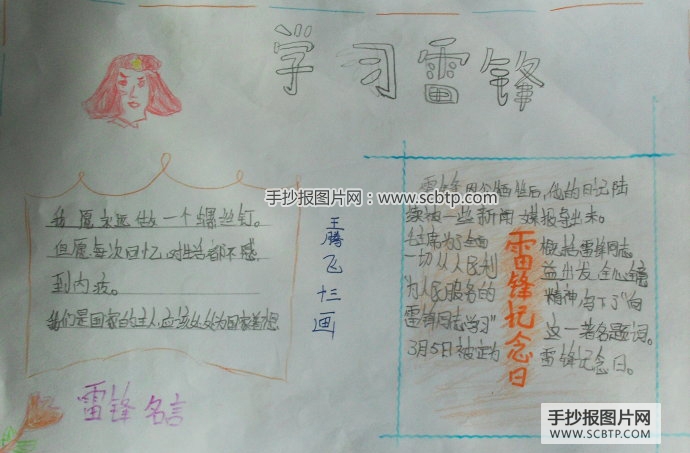 学习雷锋
手抄报图片网：www.scbtp.com
我愿永远做一个螺丝钉。
但愿每次回忆,对生活都不感
到内疚。
我们是国家的主人,应该处处为国家着想
雷锋名言
王腾飞十三画
雷锋因公牺牲后,他的日记陆
续被一些新闻媒报导出来。
毛主席为全面概括雷锋同志
一切从人民利益出发全心
为人民服务的精神写下了"向
雷锋同志学习"这一著名题词。
3月5日被定为雷锋纪念日。
雷锋纪念日
手抄报图片网
WWW.SCBTP.COM